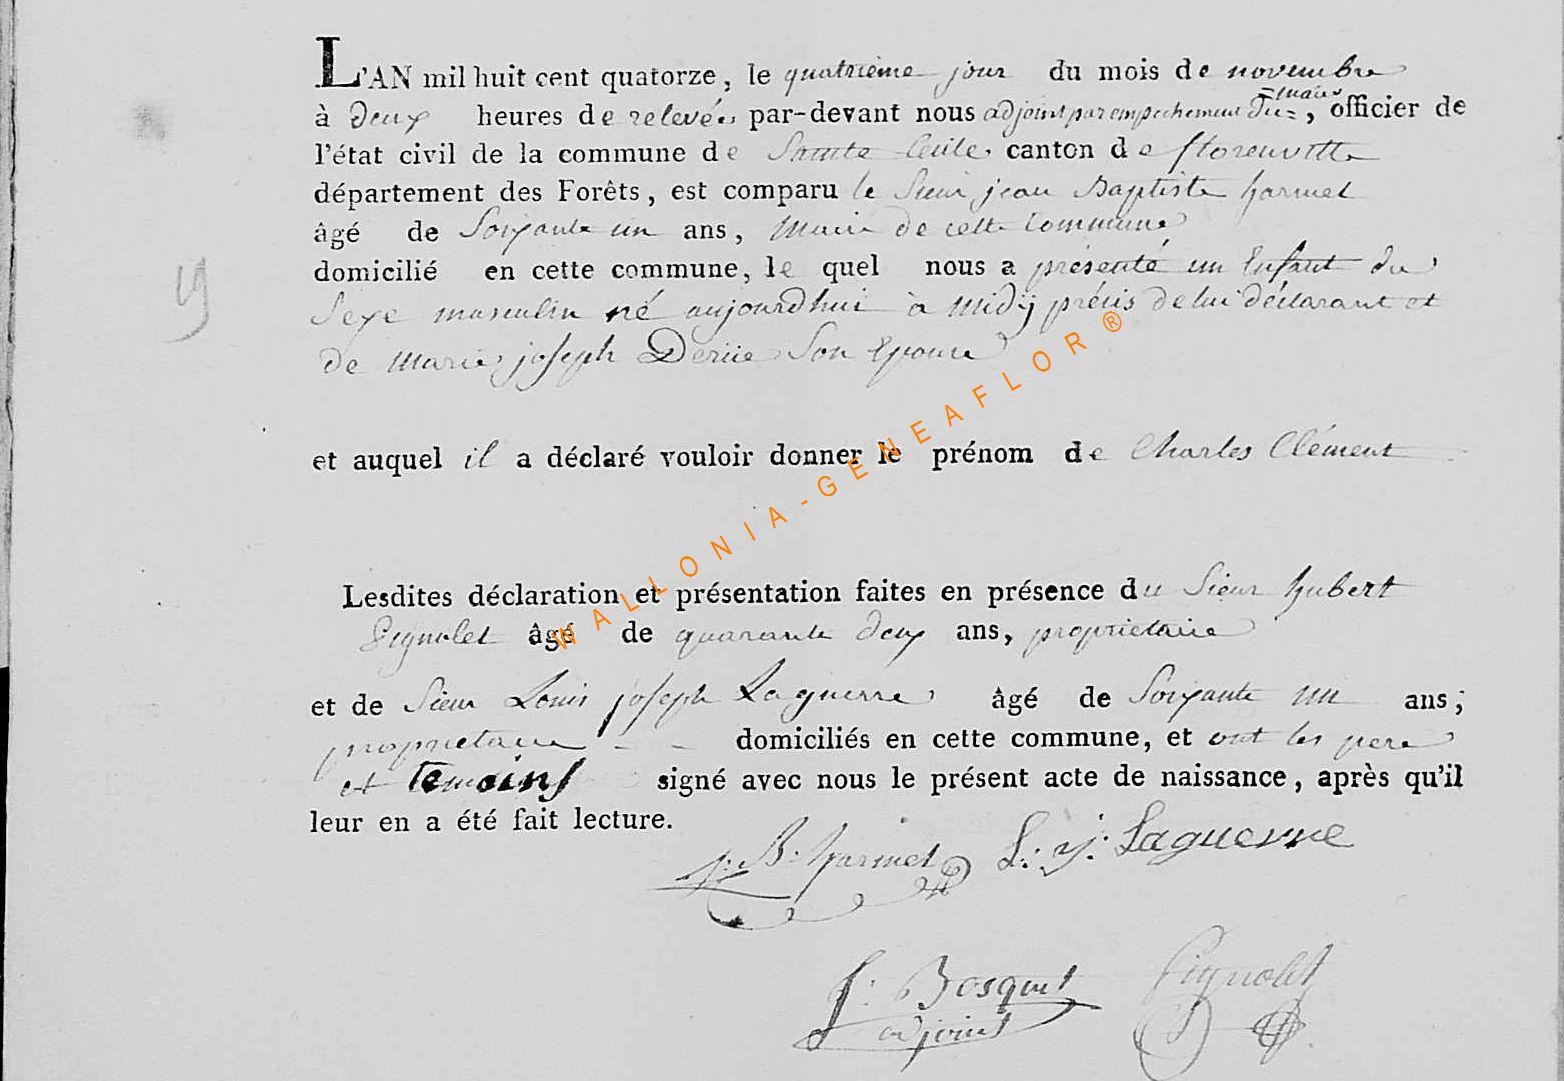 L'AN mil huit cent quatorze, le quatrième jour du mois de novembre
à deux heures de relevées par-devant nous adjoint par empechement du maire, officier de
l'état civil de la commune de Sainte Cecile canton de florenville
département des Forêts, est comparu le Sieur jean Baptiste harmel
âgé de Soixante un ans, Maire de cette Commune
domicilié en cette commune, le quel nous a présenté un Enfant du
Sexe masculin né aujourdhui à midÿ précis de lui déclarant et
de Marie joseph Son Epouse
et auquel il a déclaré vouloir donner le prénom de Charles Clément
Lesdites déclaration et présentation faites en présence du Sieur hubert
Pignolet âgé de quarante deux ans, proprietaire
et de Sieur Louis joseph Laguerre âgé de Soixante un ans;
proprietaire - - domiciliés en cette commune, et ont les pere
et temoins signé avec nous le présent acte de naissance, après qu'il
leur en a été fait lecture.
j: B: harmel L: j: Laguerre
Bosquet Pignolet
adjoint
19
WALLONIA-GENEAFLOR®